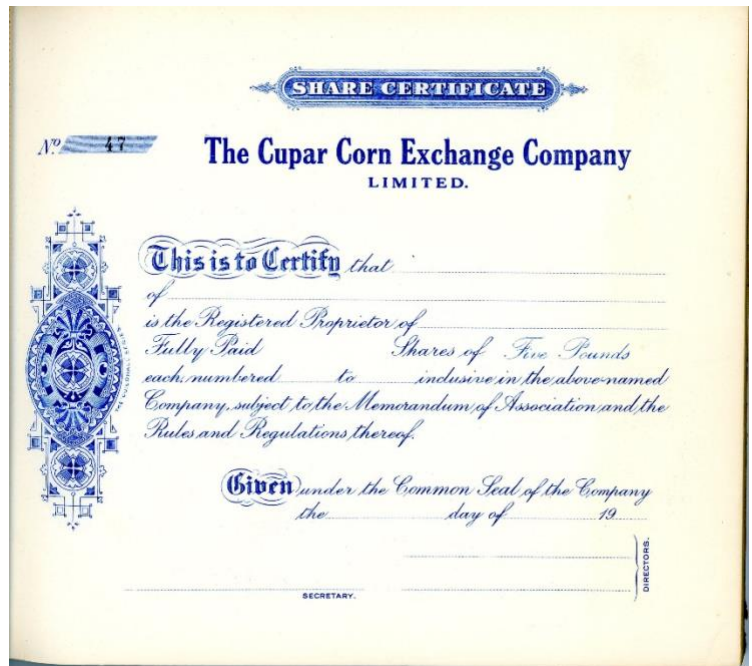 SHARE CERTIFICATE
Nº 47
The Cupar Corn Exchange Company
LIMITED.
This is to Certify that
of
is the Registered Proprietor of
Fully Paid Shares of Five Pounds
each, numbered to inclusive in the above-named
Company, subject to the Memorandum of Association and the
Rules and Regulations thereof.
Given under the Common Seal of the Company
the day of 19
DIRECTORS.
SECRETARY.